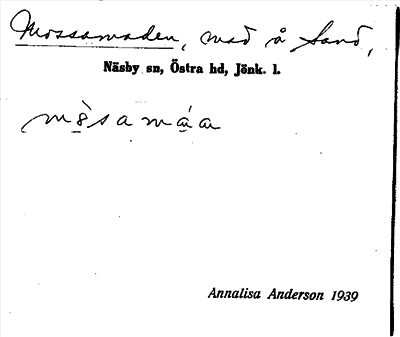 Mossamaden, mad å Sand,
Näsby sn, Östra hd, Jönk. l.
m8̀samáa
Annalisa Anderson 1939